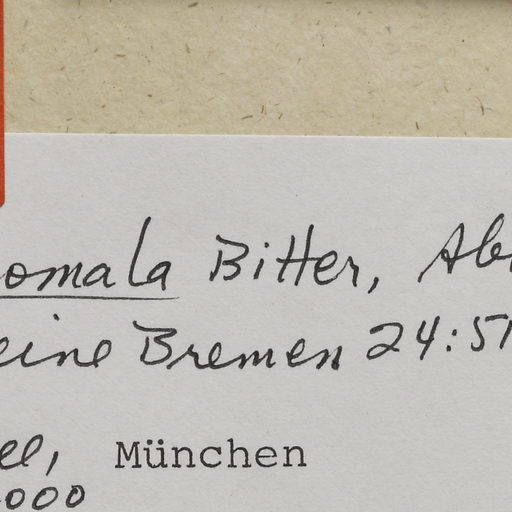 omala Bitter, Ab
eine Bremen 24:51
ee, München
000